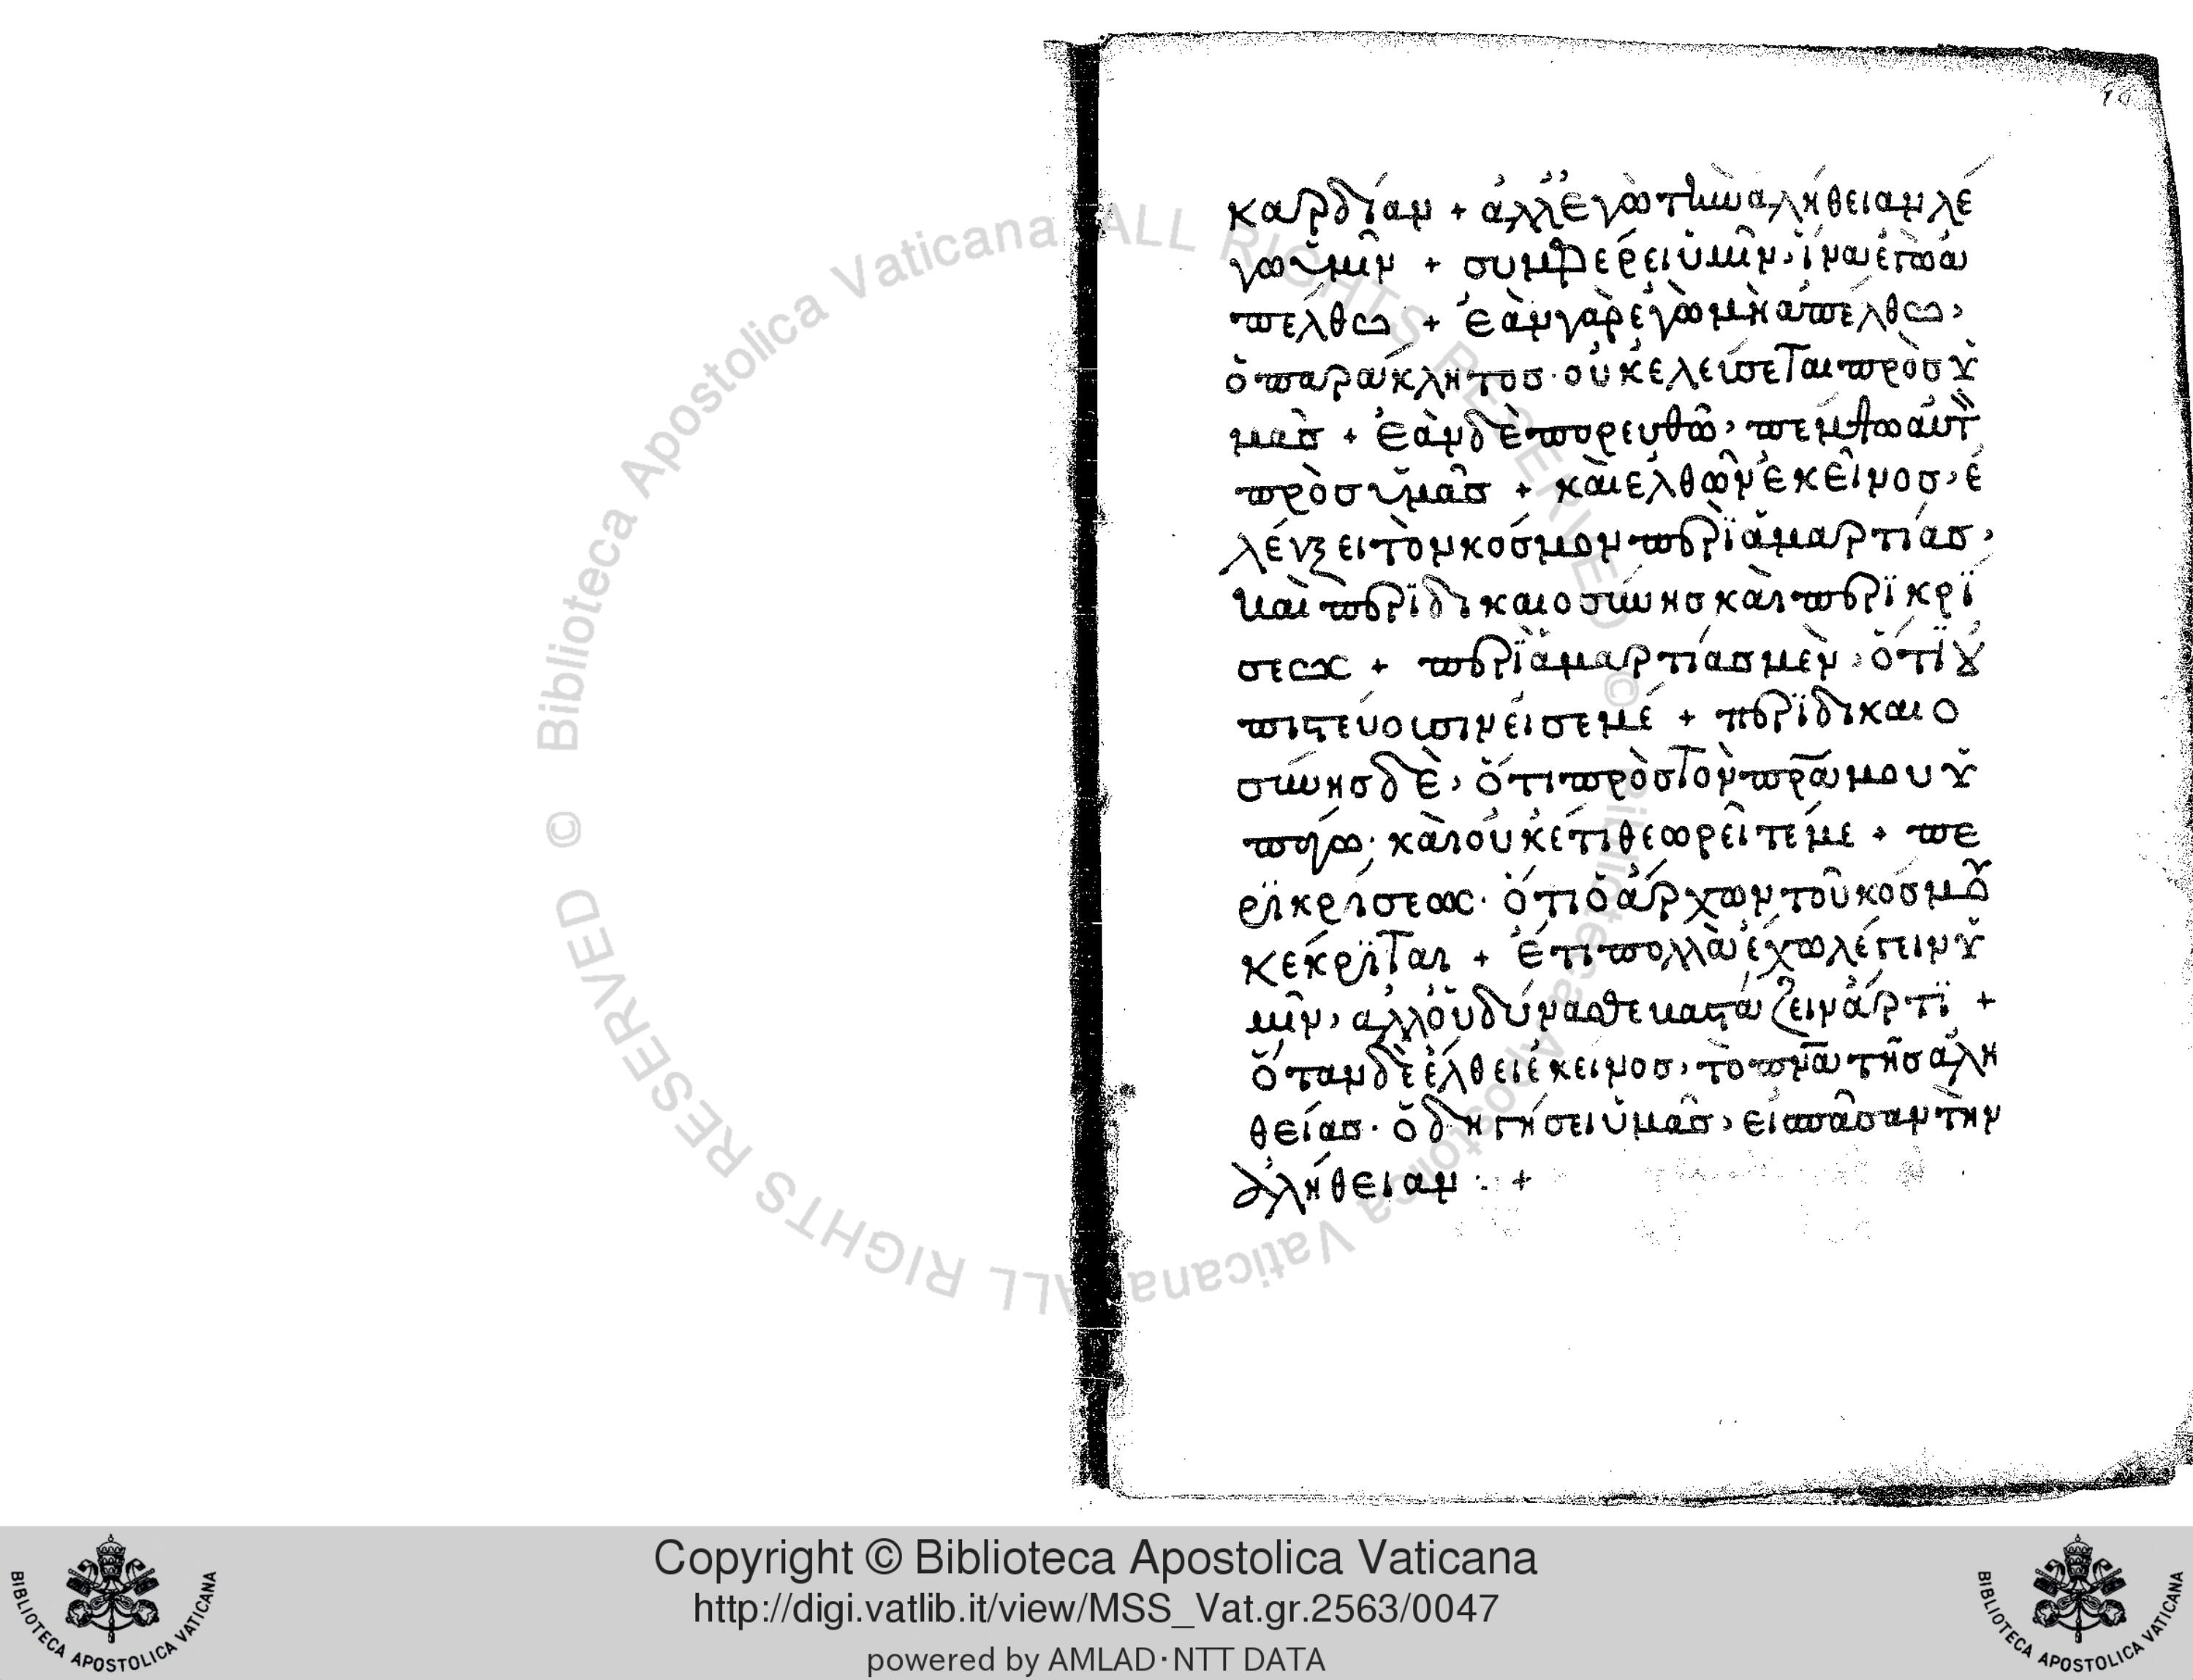 καρδίαν + ἀλλ' ἐγὼ τὴν ἀλήθειαν λέ
γω ὑμῖν + συμφέρει ὑμῖν, ἵνα ἐγὼ ἀ
πέλθω + ἐὰν γὰρ ἐγὼ μὴ ἀπέλθω,
ὁ παράκλητος· οὐκ ἐλεύσεται πρὸς ὑ
μᾶς + ἐὰν δὲ πορευθῶ, πέμψω αὐτ
πρὸς ὑμᾶς + καὶ ἐλθὼν ἐκεῖνος, ἐ
λένξει τὸν κόσμον περὶ ἁμαρτίας,
καὶ περὶ δικαιοσύνης καὶ περὶ κρί
σεως + περὶ ἁμαρτίας μὲν, ὅτι οὐ
πιστεύουσιν εἰς ἐμέ + περὶ δικαιο
σύνης δὲ, ὅτι πρὸς τὸν πρ̅α μου ὑ
πάγω· καὶ οὐκέτι θεωρεῖτέ με + πε
ρὶ κρίσεως· ὅτι ὁ ἄρχων τοῦ κόσμου
κέκριται + ἔτι πολλὰ ἔχω λέγειν ὑ
μῖν, ἀλλ' οὐ δύνασθε βαστάζειν ἄρτι +
ὅταν δὲ ἔλθει ἐκεῖνος, τὸ πν̅α τῆς ἀλη
θείας· ὁδηγήσει ὑμᾶς, εἰς πᾶσαν τὴν
ἀλήθειαν : +
Copyright © Biblioteca Apostolica Vaticana
http://digi.vatlib.it/view/MSS_Vat.gr.2563/0047
powered by AMLAD·NTT DATA
BIBLIOTECA APOSTOLICA VATICANA
BIBLIOTECA APOSTOLICA VATICANA
© Biblioteca Apostolica Vaticana ALL RIGHTS RESERVED © Biblioteca Apostolica Vaticana ALL RIGHTS RESERVED